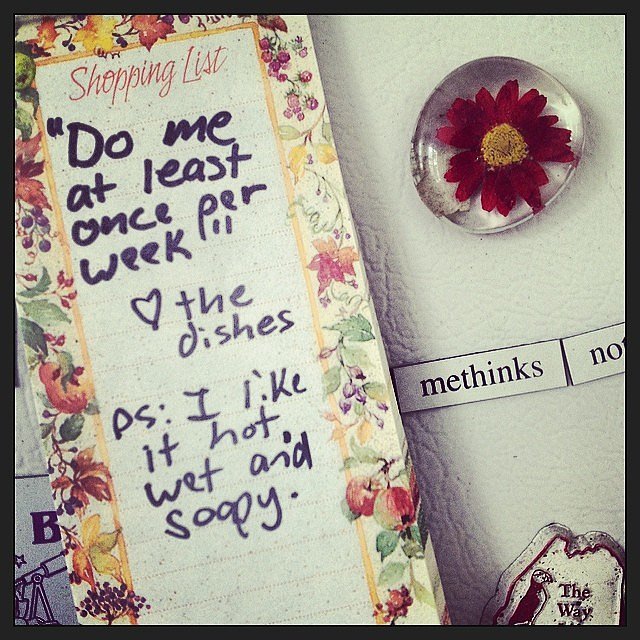 Shopping List
"Do me
at least
once per
week"
♡ the
dishes
ps: I like
it hot
wet and
soapy.
methinks
B
The
Way